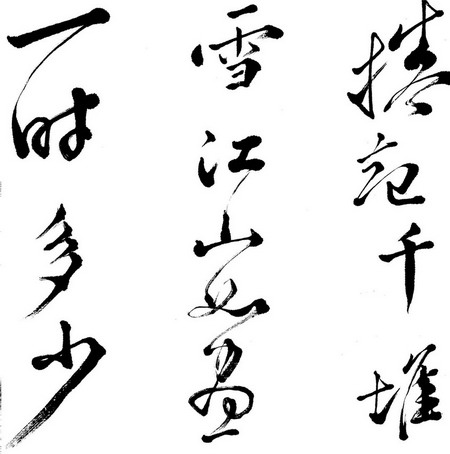 捲起千堆
雪江山如畫
一時多少